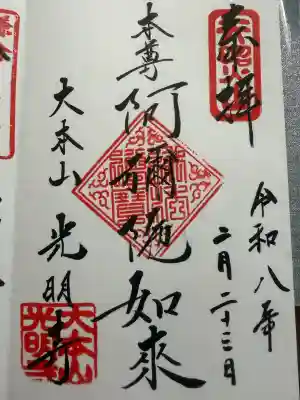 奉拝
令和八年
二月二十三日
本尊
阿彌陀如來
大本山 光明寺
大本山
光明寺